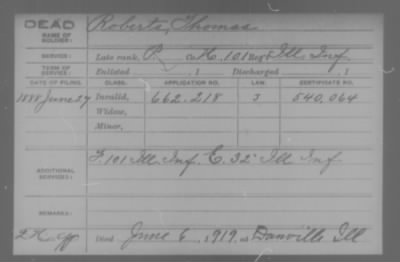 DEAD
NAME OF SOLDIER: Roberts, Thomas
SERVICE: Late rank, P. Co. H, 101 Reg't Ill. Inf.
TERM OF SERVICE: Enlisted , 1 Discharged , 1
DATE OF FILING. CLASS. APPLICATION NO. LAW. CERTIFICATE NO.
1888 June 27 Invalid, 662,218 J 540,064
Widow,
Minor,
ADDITIONAL SERVICES: F. 101 Ill. Inf. E. 32" Ill Inf
REMARKS:
Died June 6, 1919, at Danville Ill